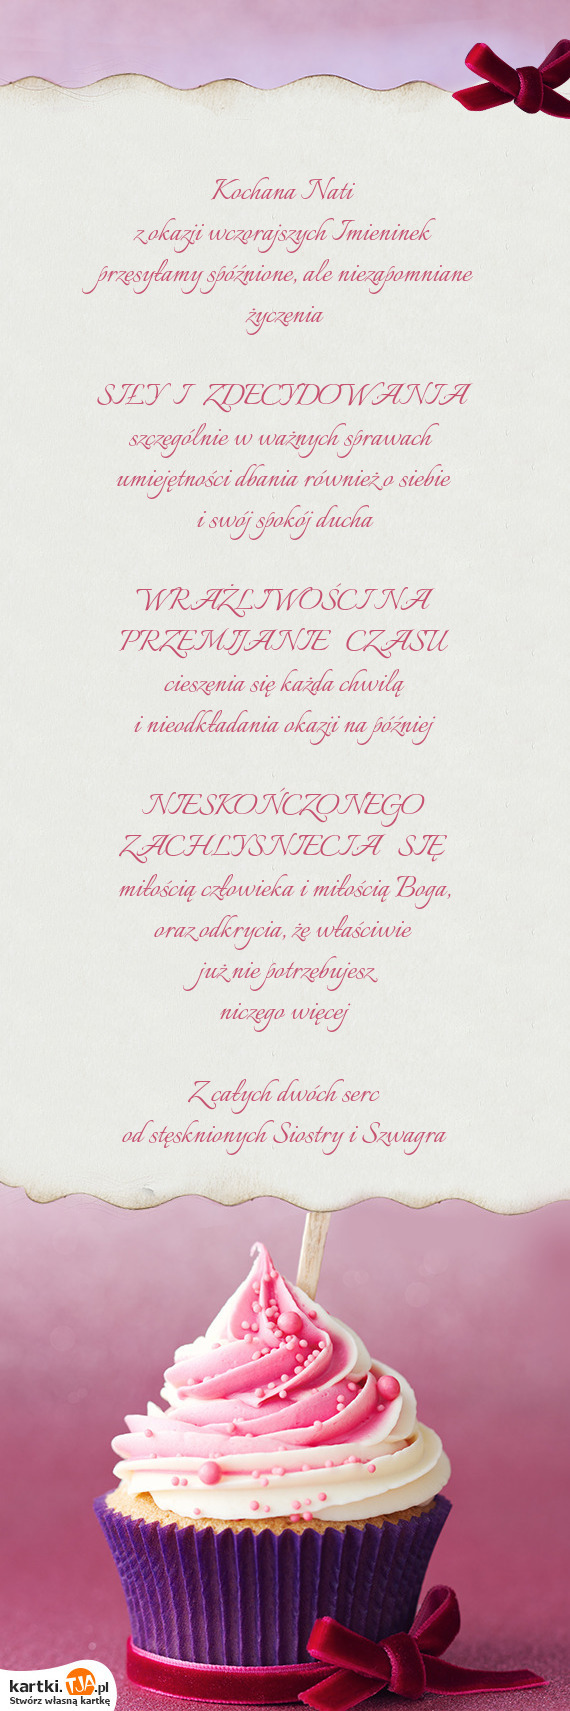 Kochana Nati
z okazji wczorajszych Imieninek
przesyłamy spóźnione, ale niezapomniane
życzenia
SIŁY I ZDECYDOWANIA
szczególnie w ważnych sprawach
umiejętności dbania również o siebie
i swój spokój ducha
WRAŻLIWOŚCI NA
PRZEMIJANIE CZASU
cieszenia się każda chwilą
i nieodkładania okazji na później
NIESKOŃCZONEGO
ZACHLYSNIECIA SIĘ
miłością człowieka i miłością Boga,
oraz odkrycia, że właściwie
już nie potrzebujesz
niczego więcej
Z całych dwóch serc
od stęsknionych Siostry i Szwagra
kartki.TJA.pl
Stwórz własną kartkę